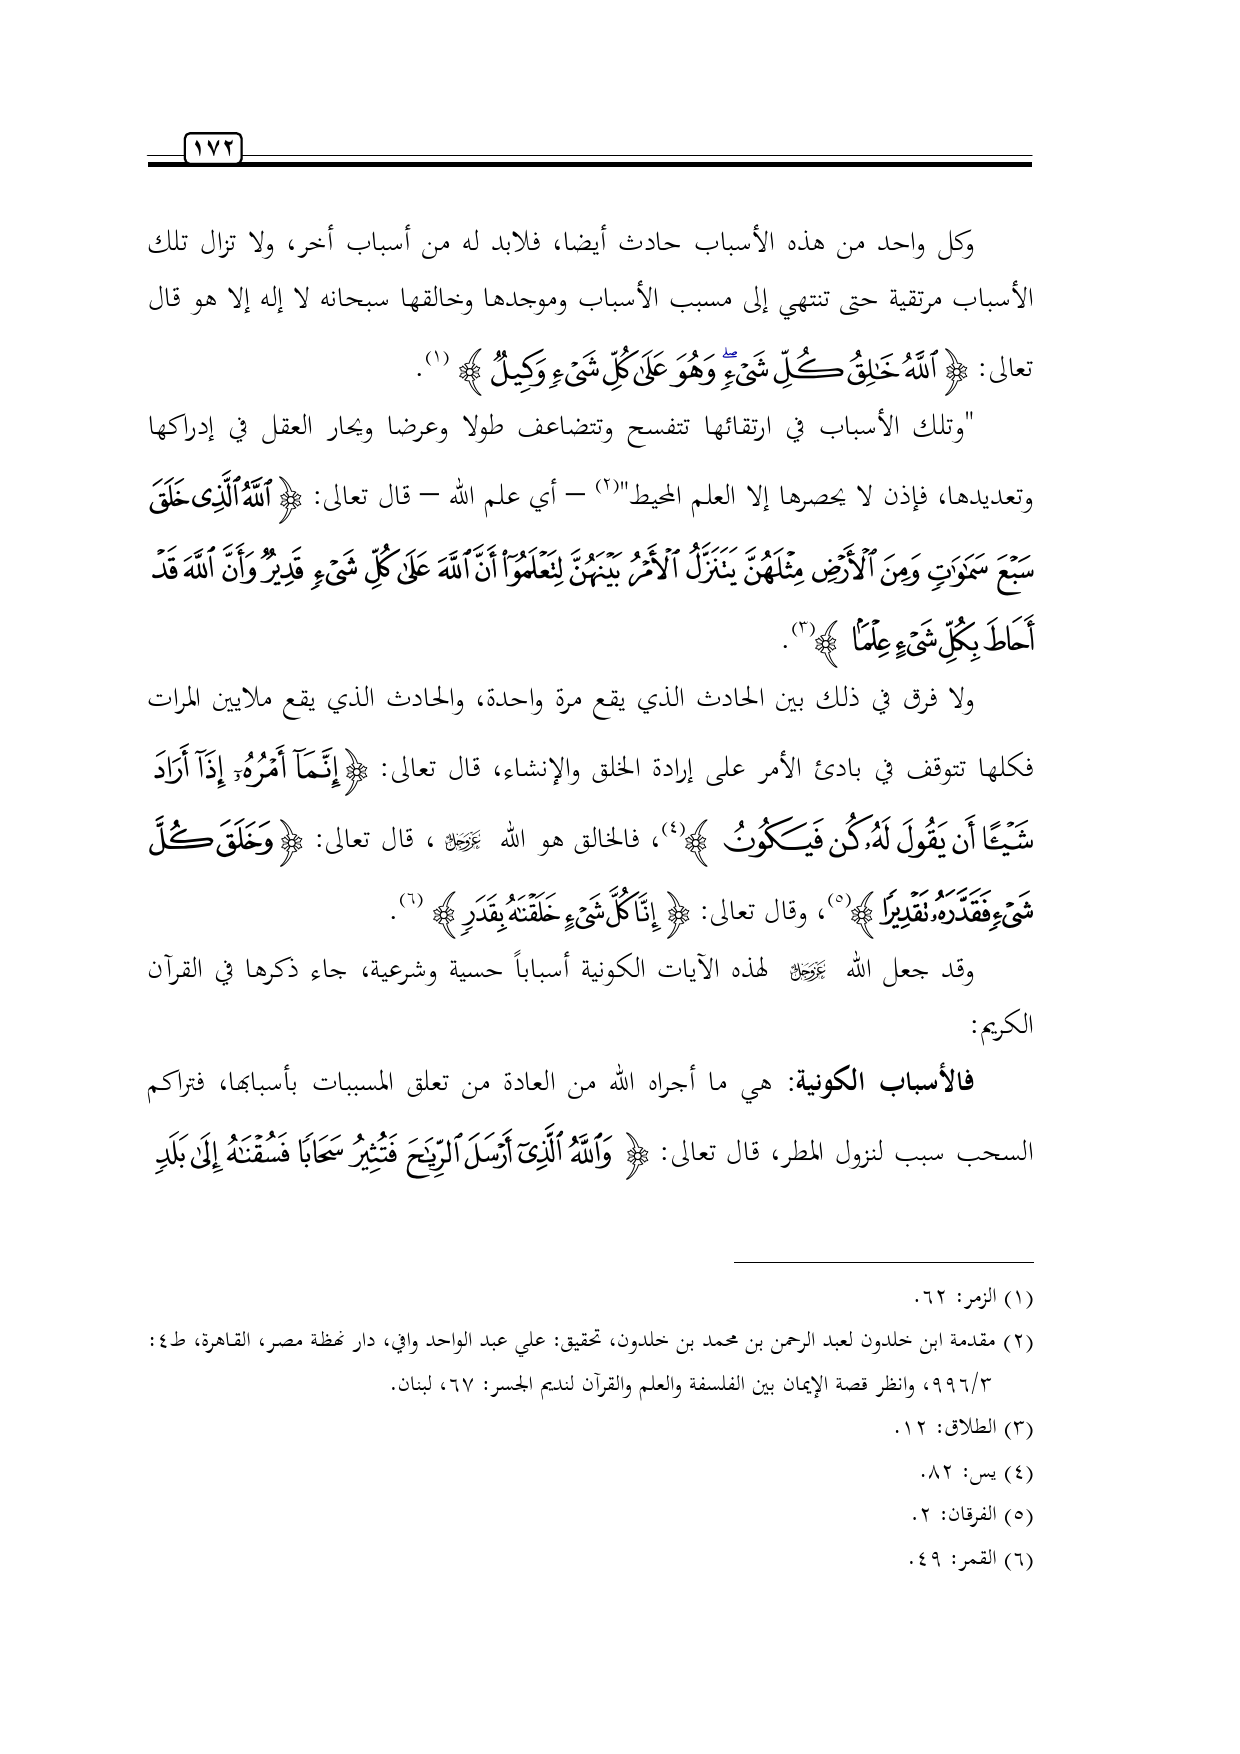 ١٧٢
وكل واحد من هذه الأسباب حادث أيضا، فلابد له من أسباب أخر، ولا تزال تلك
الأسباب مرتقية حتى تنتهي إلى مسبب الأسباب وموجدها وخالقها سبحانه لا إله إلا هو قال
تعالى: ﴿ ٱللَّهُ خَٰلِقُ كُلِّ شَيْءٖۖ وَهُوَ عَلَىٰ كُلِّ شَيْءٖ وَكِيلٞ ﴾ (١).
"وتلك الأسباب في ارتقائها تتفسح وتتضاعف طولا وعرضا ويحار العقل في إدراكها
وتعديدها، فإذن لا يحصرها إلا العلم المحيط"(٢) – أي علم الله – قال تعالى: ﴿ ٱللَّهُ ٱلَّذِي خَلَقَ
سَبۡعَ سَمَٰوَٰتٖ وَمِنَ ٱلۡأَرۡضِ مِثۡلَهُنَّ يَتَنَزَّلُ ٱلۡأَمۡرُ بَيۡنَهُنَّ لِتَعۡلَمُوٓاْ أَنَّ ٱللَّهَ عَلَىٰ كُلِّ شَيۡءٖ قَدِيرٞ وَأَنَّ ٱللَّهَ قَدۡ
أَحَاطَ بِكُلِّ شَيۡءٍ عِلۡمَۢا ﴾(٣).
ولا فرق في ذلك بين الحادث الذي يقع مرة واحدة، والحادث الذي يقع ملايين المرات
فكلها تتوقف في بادئ الأمر على إرادة الخلق والإنشاء، قال تعالى: ﴿ إِنَّمَآ أَمۡرُهُۥٓ إِذَآ أَرَادَ
شَيۡـًٔا أَن يَقُولَ لَهُۥ كُن فَيَكُونُ ﴾(٤)، فالخالق هو الله عَزَّوَجَلَّ ، قال تعالى: ﴿ وَخَلَقَ كُلَّ
شَيۡءٖ فَقَدَّرَهُۥ تَقۡدِيرٗا ﴾(٥)، وقال تعالى: ﴿ إِنَّا كُلَّ شَيۡءٍ خَلَقۡنَٰهُ بِقَدَرٖ ﴾ (٦).
وقد جعل الله عَزَّوَجَلَّ لهذه الآيات الكونية أسباباً حسية وشرعية، جاء ذكرها في القرآن
الكريم:
فالأسباب الكونية: هي ما أجراه الله من العادة من تعلق المسببات بأسبابها، فتراكم
السحب سبب لنزول المطر، قال تعالى: ﴿ وَٱللَّهُ ٱلَّذِيٓ أَرۡسَلَ ٱلرِّيَٰحَ فَتُثِيرُ سَحَابٗا فَسُقۡنَٰهُ إِلَىٰ بَلَدٖ
(١) الزمر: ٦٢.
(٢) مقدمة ابن خلدون لعبد الرحمن بن محمد بن خلدون، تحقيق: علي عبد الواحد وافي، دار نهظة مصر، القاهرة، ط٤:
٩٩٦/٣، وانظر قصة الإيمان بين الفلسفة والعلم والقرآن لنديم الجسر: ٦٧، لبنان.
(٣) الطلاق: ١٢.
(٤) يس: ٨٢.
(٥) الفرقان: ٢.
(٦) القمر: ٤٩.